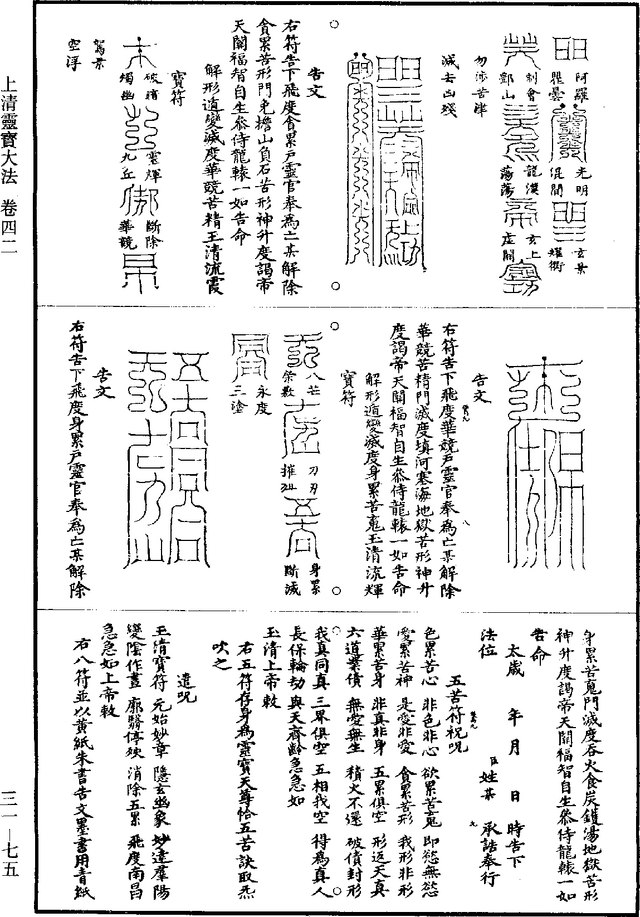 上清靈寶大法 卷四二
三一—七五
阿羅
瞿曇
光明
混聞
玄景
耀衛
制會
酆山
龍漢
蕩蕩
玄上
虛開
勿涉苦津
滅去凶殘
告文
右符告下飛度食累戶靈官奉為亡某解除
食累苦形門免擔山負石苦形神升度謁帝
天闕福智自生叅侍龍轅一如告命
解形遁變滅度華競苦精玉清流霞
寶符
破暗
燭幽
靈輝
九丘
斷除
華競
駕景
空浮
告文
右符告下飛度華競戶靈官奉為亡某解除
華競苦精門滅度填河塞海地獄苦形神升
度謁帝天闕福智自生叅侍龍轅一如告命
解形遁變滅度身累苦䰟玉清流輝
寶符
八芒
刀刃
摧
身累
斷滅
永度
三塗
告文
右符告下飛度身累戶靈官奉為亡某解除
身累苦䰟門滅度吞火食炭鑊湯地獄苦形
神升度謁帝天闕福智自生叅侍龍轅一如
告命
太歲 年 月 日 時告下
法位 臣姓某 承誥奉行
五苦符祝呪
色累苦心 非色非心 欲累苦䰟 即慾無慾
愛累苦神 是愛非愛 食累苦形 我形非形
華累苦身 非真非身 五累俱空 形返天真
六道業債 無愛無生 積火不還 破債封形
我真同真 三界俱空 五相我空 得為真人
長保輪劫 與天齊齡 急急如
玉清上帝敕
右五符存身為靈寶天尊恰五苦訣取炁
吹之
遣呪
玉清寶符 元始妙章 隱玄幽象 妙達羣陽
變陰作晝 廓翳停殃 消除五累 飛度南昌
急急如上帝敕
右八符並以黃紙朱書告文墨書用青紙